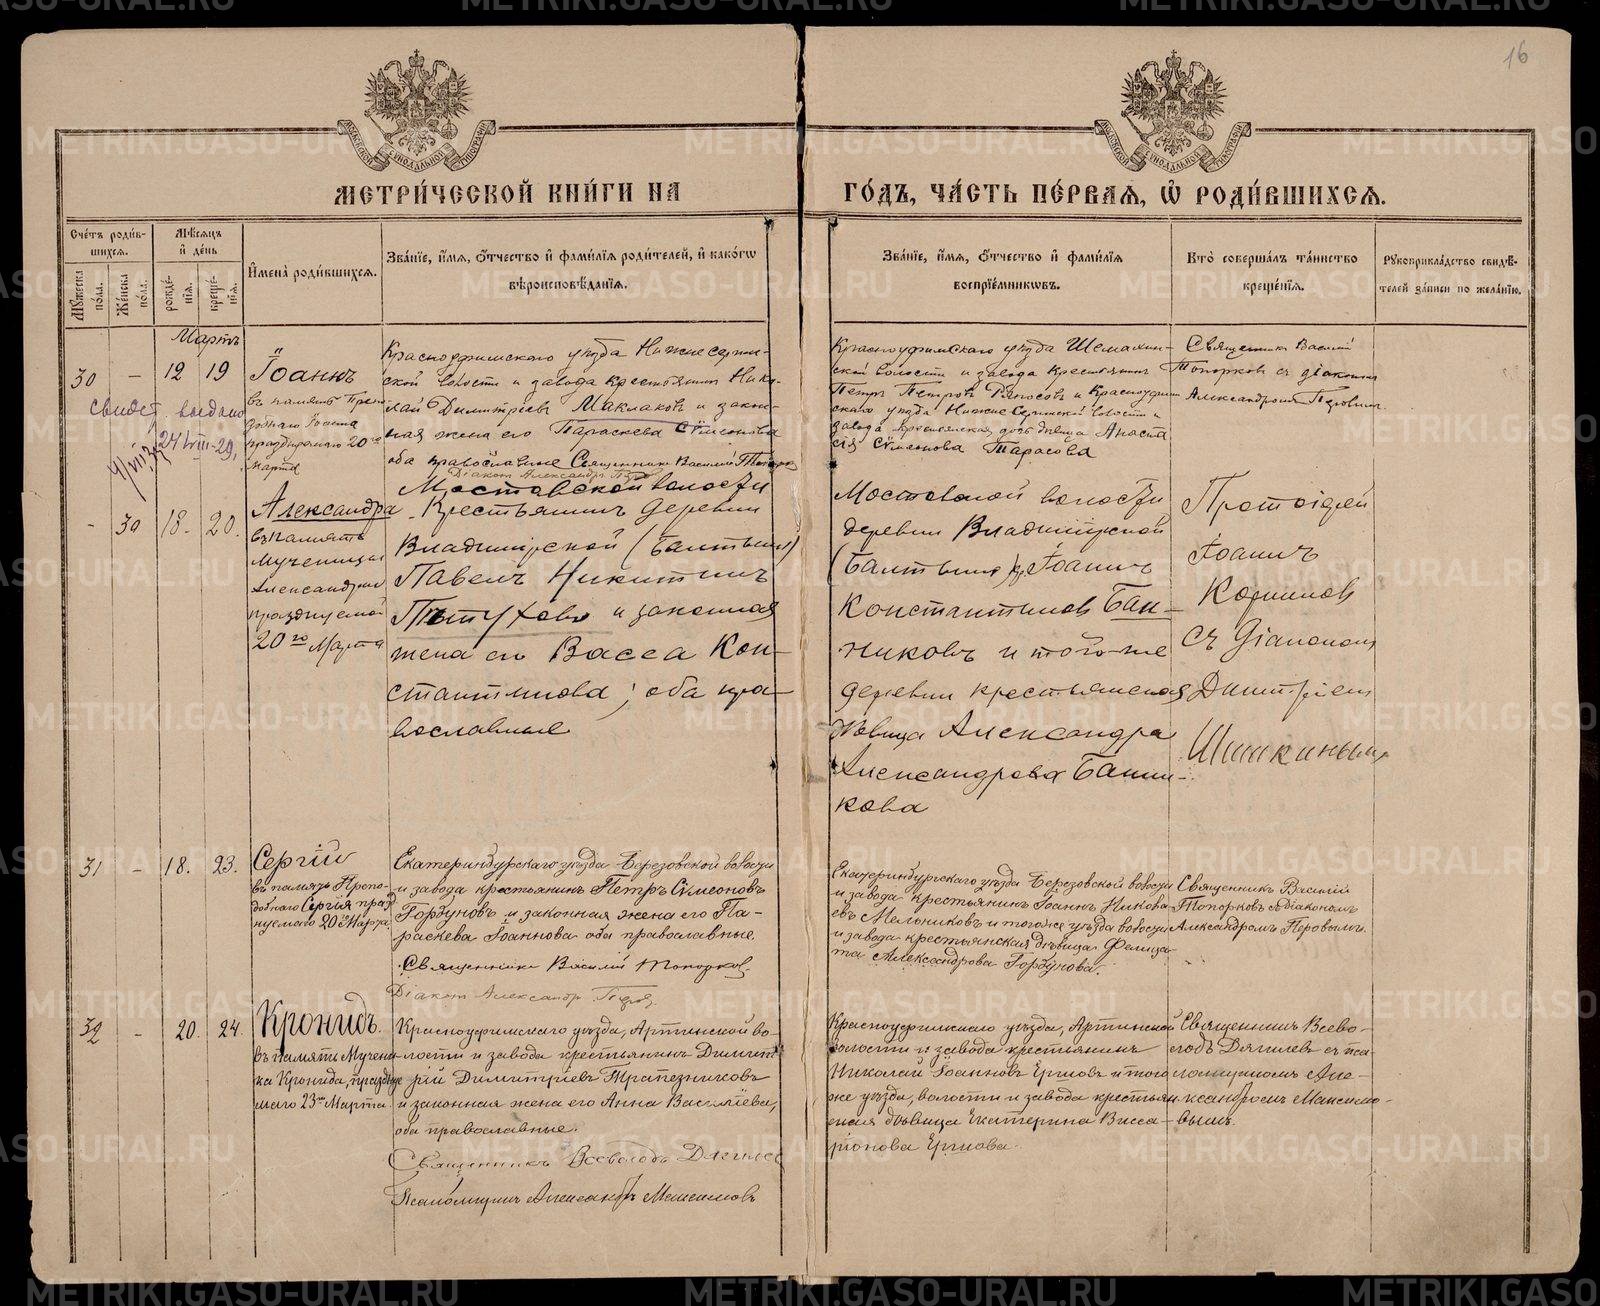 16
МЕТРИ́ЧЕСКОЙ КНИ́ГИ НА
ГО́ДЪ, ЧА́СТЬ ПЕ́РВАЯ, Ѽ РОДИ́ВШИХСЯ.
Сче́тъ роди́в-
шихся.
Мѣ́сяцъ
и҆ де́нь
Му́жеска
по́ла.
Же́нска
по́ла.
рожде́-
нїя.
креще́-
нїя.
И҆мена̀ роди́вшихся.
Зва́нїе, и҆́мя, ѻ҆́тчество и҆ фами́лїя роди́телей, и҆ како́гѡ
вѣроисповѣ́данїя.
Зва́нїе, и҆́мя, ѻ҆́тчество и҆ фами́лїя
воспрїе́мникѡвъ.
Кто̀ соверша́лъ та́инство
креще́нїя.
Рꙋкоприкла́дство свидѣ́-
телей за́писи по жела́нїю.
Мартъ
30 - 12 19
Іоаннъ
въ память Препо-
добнаго Іоанна
празднуемаго 20го
Марта
свидет. выдано
24 VIII-29,
Красноуфимскаго уѣзда Нижнесергин-
ской волости и завода крестьянинъ Нико-
лай Димитріевъ Маклаковъ и закон-
ная жена его Параскева Сѵмеонова
оба православные Священникъ Василій Топорков
Діаконъ Александръ Перов
Красноуфимскаго уѣзда Шемахин-
ской волости и завода крестьянинъ
Петръ Петровъ и Красноуфим
скаго уѣзда Нижне Сергинской волости и
завода крестьянская дочь дѣвица Анаста
сія Сѵмеонова Тарасова
Священникъ Василій
Топорковъ съ діакономъ
Александромъ Перовымъ.
- 30 18. 20.
Александра
въ память
Мученицы
Александры
празднуемой
20го Марта
Мостовской волости
крестьянинъ деревни
Владимірской (Балтыма)
Павелъ Никитинъ
Пѣтуховъ и законная
жена его Васса Кон-
стантинова; оба пра-
вославные
Мостовской волости
деревни Владимірской
(Балтыма) кр. Іоаннъ
Константиновъ Бан-
никовъ и того-же
деревни крестьянская
дѣвица Александра
Александрова Банни-
кова
Протоіерей
Іоаннъ
съ Діакономъ
Димитріемъ
Шишкинымъ
31 - 18. 23.
Сергій
въ память Препо-
добнаго Сергія празд
нуемаго 20го Марта.
Екатеринбурскаго уѣзда Березовской волости
и завода крестьянинъ Петръ Сѵмеоновъ
Горбуновъ и законная жена его Па-
раскева Іоаннова оба православные.
Священникъ Василій Топорков.
Діаконъ Александр Перов.
Екатеринбургскаго уѣзда Березовской волости
и завода крестьянинъ Іоаннъ Никола-
евъ Мельниковъ и того же уѣзда волости
и завода крестьянская дѣвица Фелица-
та Александрова Горбунова.
Священникъ Василій
Топорковъ съ діакономъ
Александромъ Перовымъ.
32 - 20. 24.
Кронидъ.
въ память Мучени-
ка Кронида, праздну
маго 23го Марта.
Красноуфимскаго уѣзда, Артинской во-
лости и завода крестьянинъ Димит-
рій Димитріевъ Трапезниковъ
и законная жена его Анна Васильева,
оба православные.
Священникъ Всеволодъ Дягилев
Псаломщикъ Александръ Максимовъ
Красноуфимскаго уѣзда, Артинской
волости и завода крестьянинъ
Николай Іоанновъ и того
же уѣзда, волости и завода крестьян-
ская дѣвица Екатерина Висса-
ріонова
Священникъ Всево-
лодъ Дягилевъ съ пса-
ломщикомъ Але-
ксандромъ Максимо-
вымъ.
METRIKI.GASO-URAL.RU